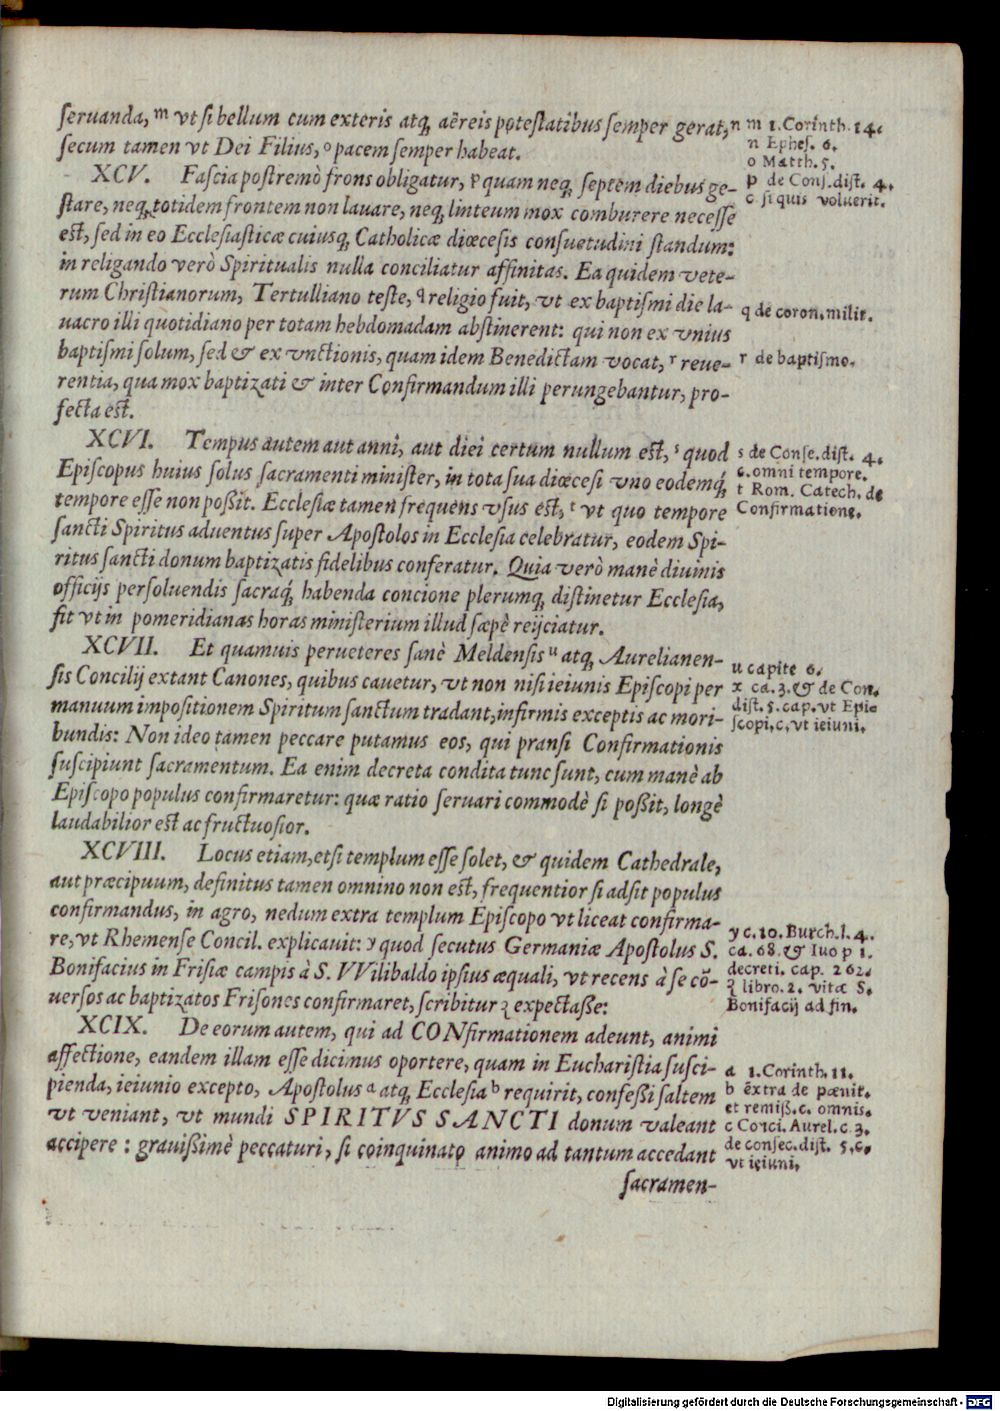 ſeruanda, ᵐ vt ſi bellum cum exteris atq́; aëreis poteſtatibus ſemper gerat, ⁿ
ſecum tamen vt Dei Filius, ᵒ pacem ſemper habeat.
XCV. Faſcia poſtremò frons obligatur, ᵖ quam neq́; ſeptem diebus ge-
ſtare, neq́; totidem frontem non lauare, neq́; linteum mox comburere neceſſe
eſt, ſed in eo Eccleſiaſticæ cuiusq́; Catholicæ diœceſis conſuetudini ſtandum:
in religando verò Spiritualis nulla conciliatur affinitas. Ea quidem vete-
rum Chriſtianorum, Tertulliano teſte, q religio fuit, vt ex baptiſmi die la-
uacro illi quotidiano per totam hebdomadam abſtinerent: qui non ex vnius
baptiſmi ſolum, ſed & ex vnctionis, quam idem Benedictam vocat, ʳ reue-
rentia, qua mox baptizati & inter Confirmandum illi perungebantur, pro-
fecta eſt.
XCVI. Tempus autem aut anni, aut diei certum nullum eſt, ˢ quod
Epiſcopus huius ſolus ſacramenti miniſter, in tota ſua diœceſi vno eodemq́;
tempore eſſe non poßit. Eccleſiæ tamen frequens vſus eſt, ᵗ vt quo tempore
ſancti Spiritus aduentus ſuper Apoſtolos in Eccleſia celebratur, eodem Spi-
ritus ſancti donum baptizatis fidelibus conferatur. Quia verò manè diuinis
officijs perſoluendis ſacraq́; habenda concione plerumq́; diſtinetur Eccleſia,
fit vt in pomeridianas horas miniſterium illud ſæpè reijciatur.
XCVII. Et quamuis perueteres ſanè Meldenſis ᵘ atq́; Aurelianen-
ſis Concilij extant Canones, quibus cauetur, vt non niſi ieiunis Epiſcopi per
manuum impoſitionem Spiritum ſanctum tradant, infirmis exceptis ac mori-
bundis: Non ideo tamen peccare putamus eos, qui pranſi Confirmationis
ſuſcipiunt ſacramentum. Ea enim decreta condita tunc ſunt, cum manè ab
Epiſcopo populus confirmaretur: quæ ratio ſeruari commodè ſi poßit, longè
laudabilior eſt ac fructuoſior.
XCVIII. Locus etiam, etſi templum eſſe ſolet, & quidem Cathedrale,
aut præcipuum, definitus tamen omnino non eſt, frequentior ſi adſit populus
confirmandus, in agro, nedum extra templum Epiſcopo vt liceat confirma-
re, vt Rhemenſe Concil. explicauit: ʸ quod ſecutus Germaniæ Apoſtolus S.
Bonifacius in Friſiæ campis à S. VVilibaldo ipſius æquali, vt recens à ſe cō-
uerſos ac baptizatos Friſones confirmaret, ſcribitur ᶻ expectaſſe:
XCIX. De eorum autem, qui ad CONfirmationem adeunt, animi
affectione, eandem illam eſſe dicimus oportere, quam in Euchariſtia ſuſci-
pienda, ieiunio excepto, Apoſtolus ᵃ atq́; Eccleſia ᵇ requirit, confeßi ſaltem
vt veniant, vt mundi SPIRITVS SANCTI donum valeant
accipere: grauißimè peccaturi, ſi coinquinato animo ad tantum accedant
ſacramen-
m 1. Corinth. 14.
n Epheſ. 6.
o Matth. 5.
p de Conſ. diſt. 4.
c. ſi quis voluerit.
q de coron. milit.
r de baptiſmo.
s de Conſe. diſt. 4.
c. omni tempore.
t Rom. Catech. de
Confirmatione.
u capite 6.
x ca. 3. & de Con.
diſt. 5. cap. vt Epiſ
ſcopi. c. vt ieiuni.
y c. 10. Burch. l. 4.
ca. 68. & Iuo p 1.
decreti. cap. 262.
ʒ libro. 2. vitæ S.
Bonifacij ad fin.
a 1. Corinth. 11.
b ēxtra de pœnit.
et remiß. c. omnis.
c Conci. Aurel. c. 3.
de conſec. diſt. 5. c.
vt ieiuni.
Digitalisierung gefördert durch die Deutsche Forschungsgemeinschaft - DFG